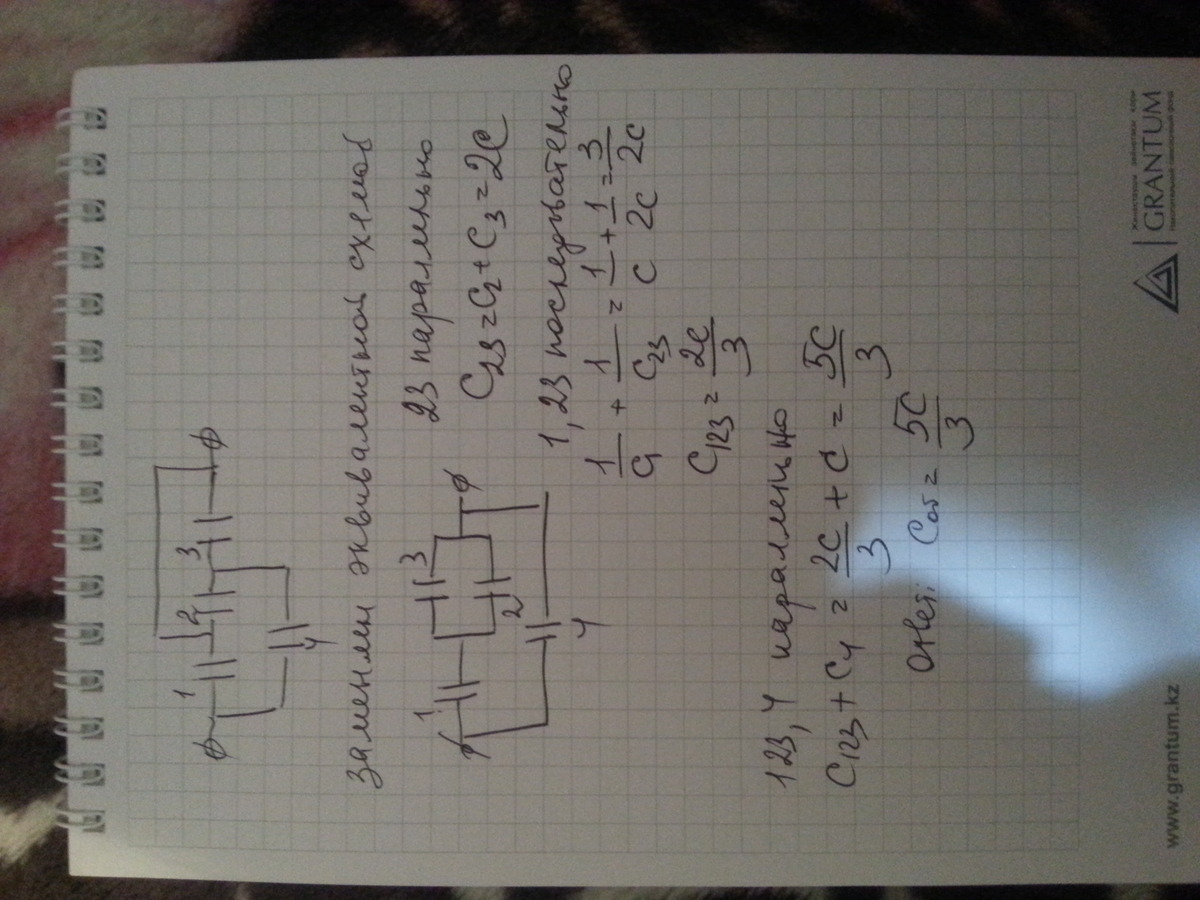 1 2 3
4
заменим эквивалентной схемой
1 3
2
4
23 параллельно
C₂₃ = C₂ + C₃ = 2C
1, 23 последовательно
1/C₁ + 1/C₂₃ = 1/C + 1/2C = 3/2C
C₁₂₃ = 2C/3
123, 4 параллельно
C₁₂₃ + C₄ = 2C/3 + C = 5C/3
Ответ: Cоб = 5C/3
www.grantum.kz
GRANTUM